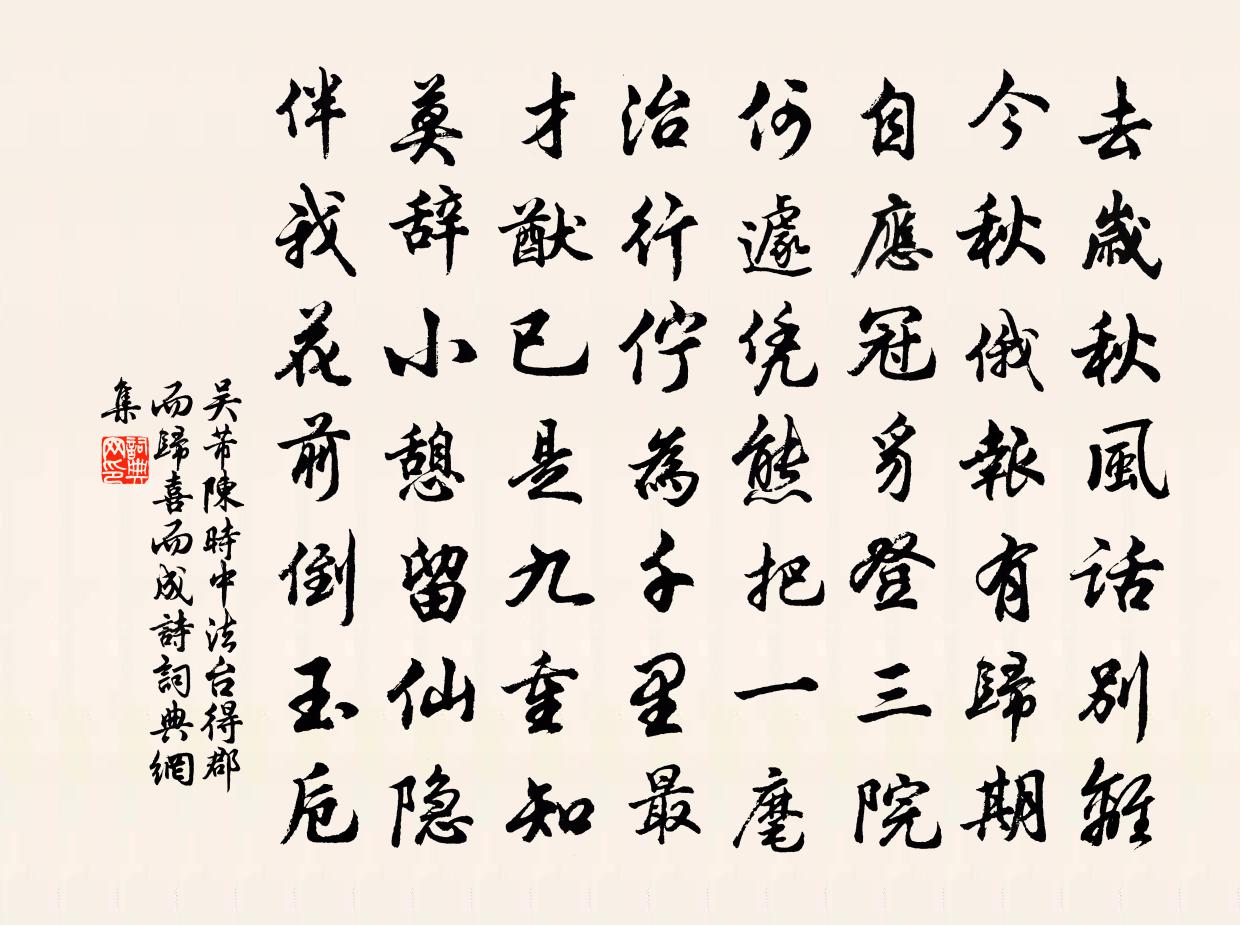 去歲秋風話別離
今秋俄報有歸期
自應冠豸登三院
何遽凭熊把一麾
治行佇為千里最
才猷已是九重知
莫辞小憩留仙隐
伴我花前倒玉卮
吴芾陳時中法台得郡
而歸喜而成詩詞典網
集
詞典
网印